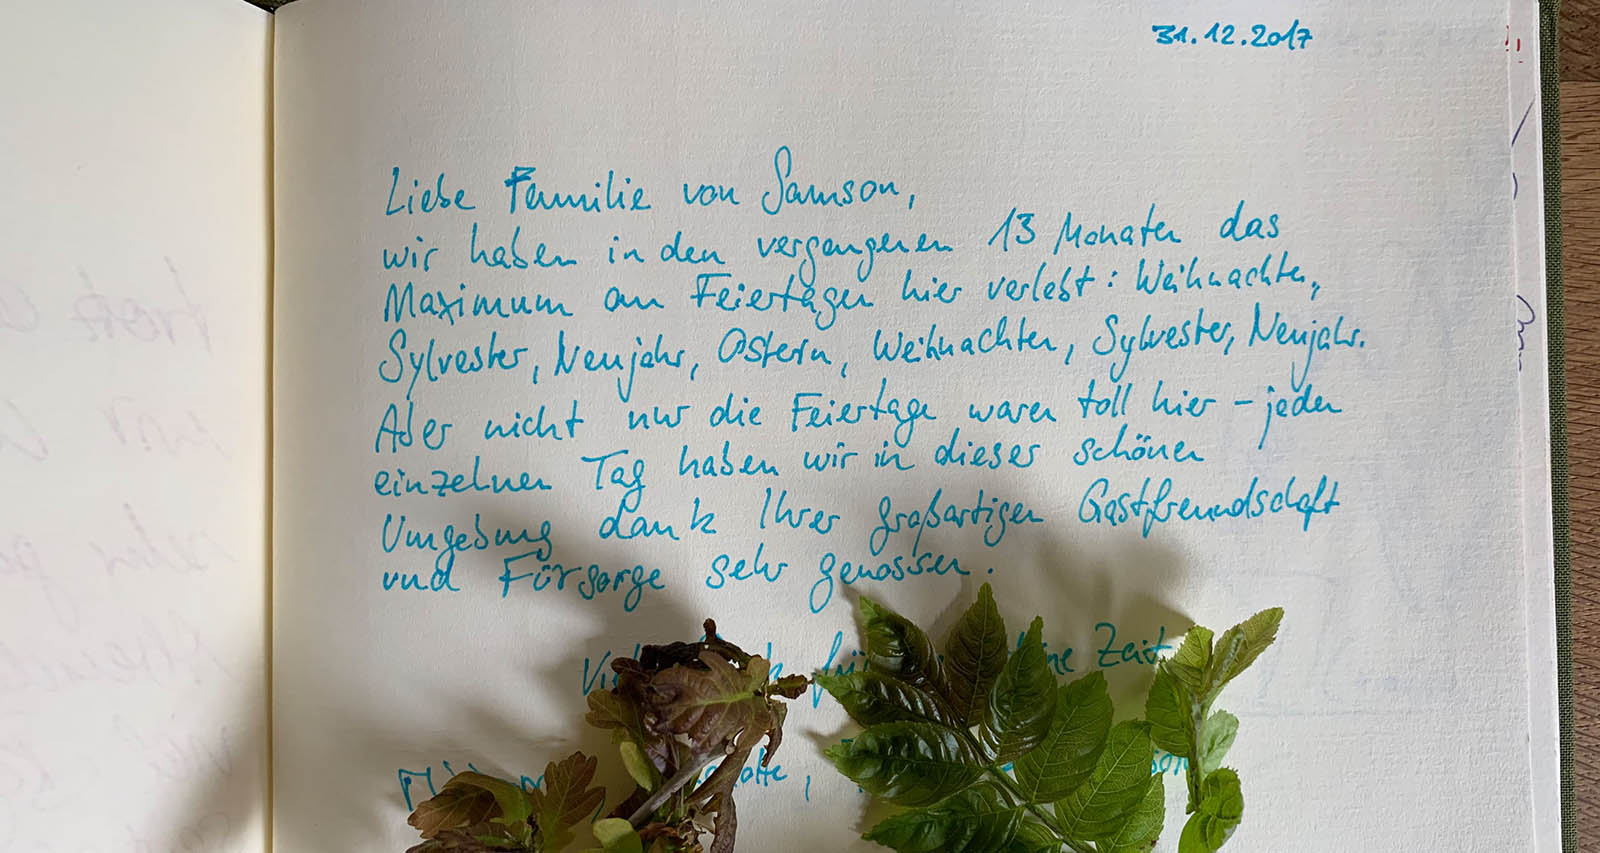 31.12.2017
Liebe Familie von Samson,
wir haben in den vergangenen 13 Monaten das
Maximum an Feiertagen hier verlebt: Weihnachten,
Sylvester, Neujahr, Ostern, Weihnachten, Sylvester, Neujahr.
Aber nicht nur die Feiertage waren toll hier – jeden
einzelnen Tag haben wir in dieser schönen
Umgebung dank Ihrer großartigen Gastfreundschaft
und Fürsorge sehr genossen.
Zeit